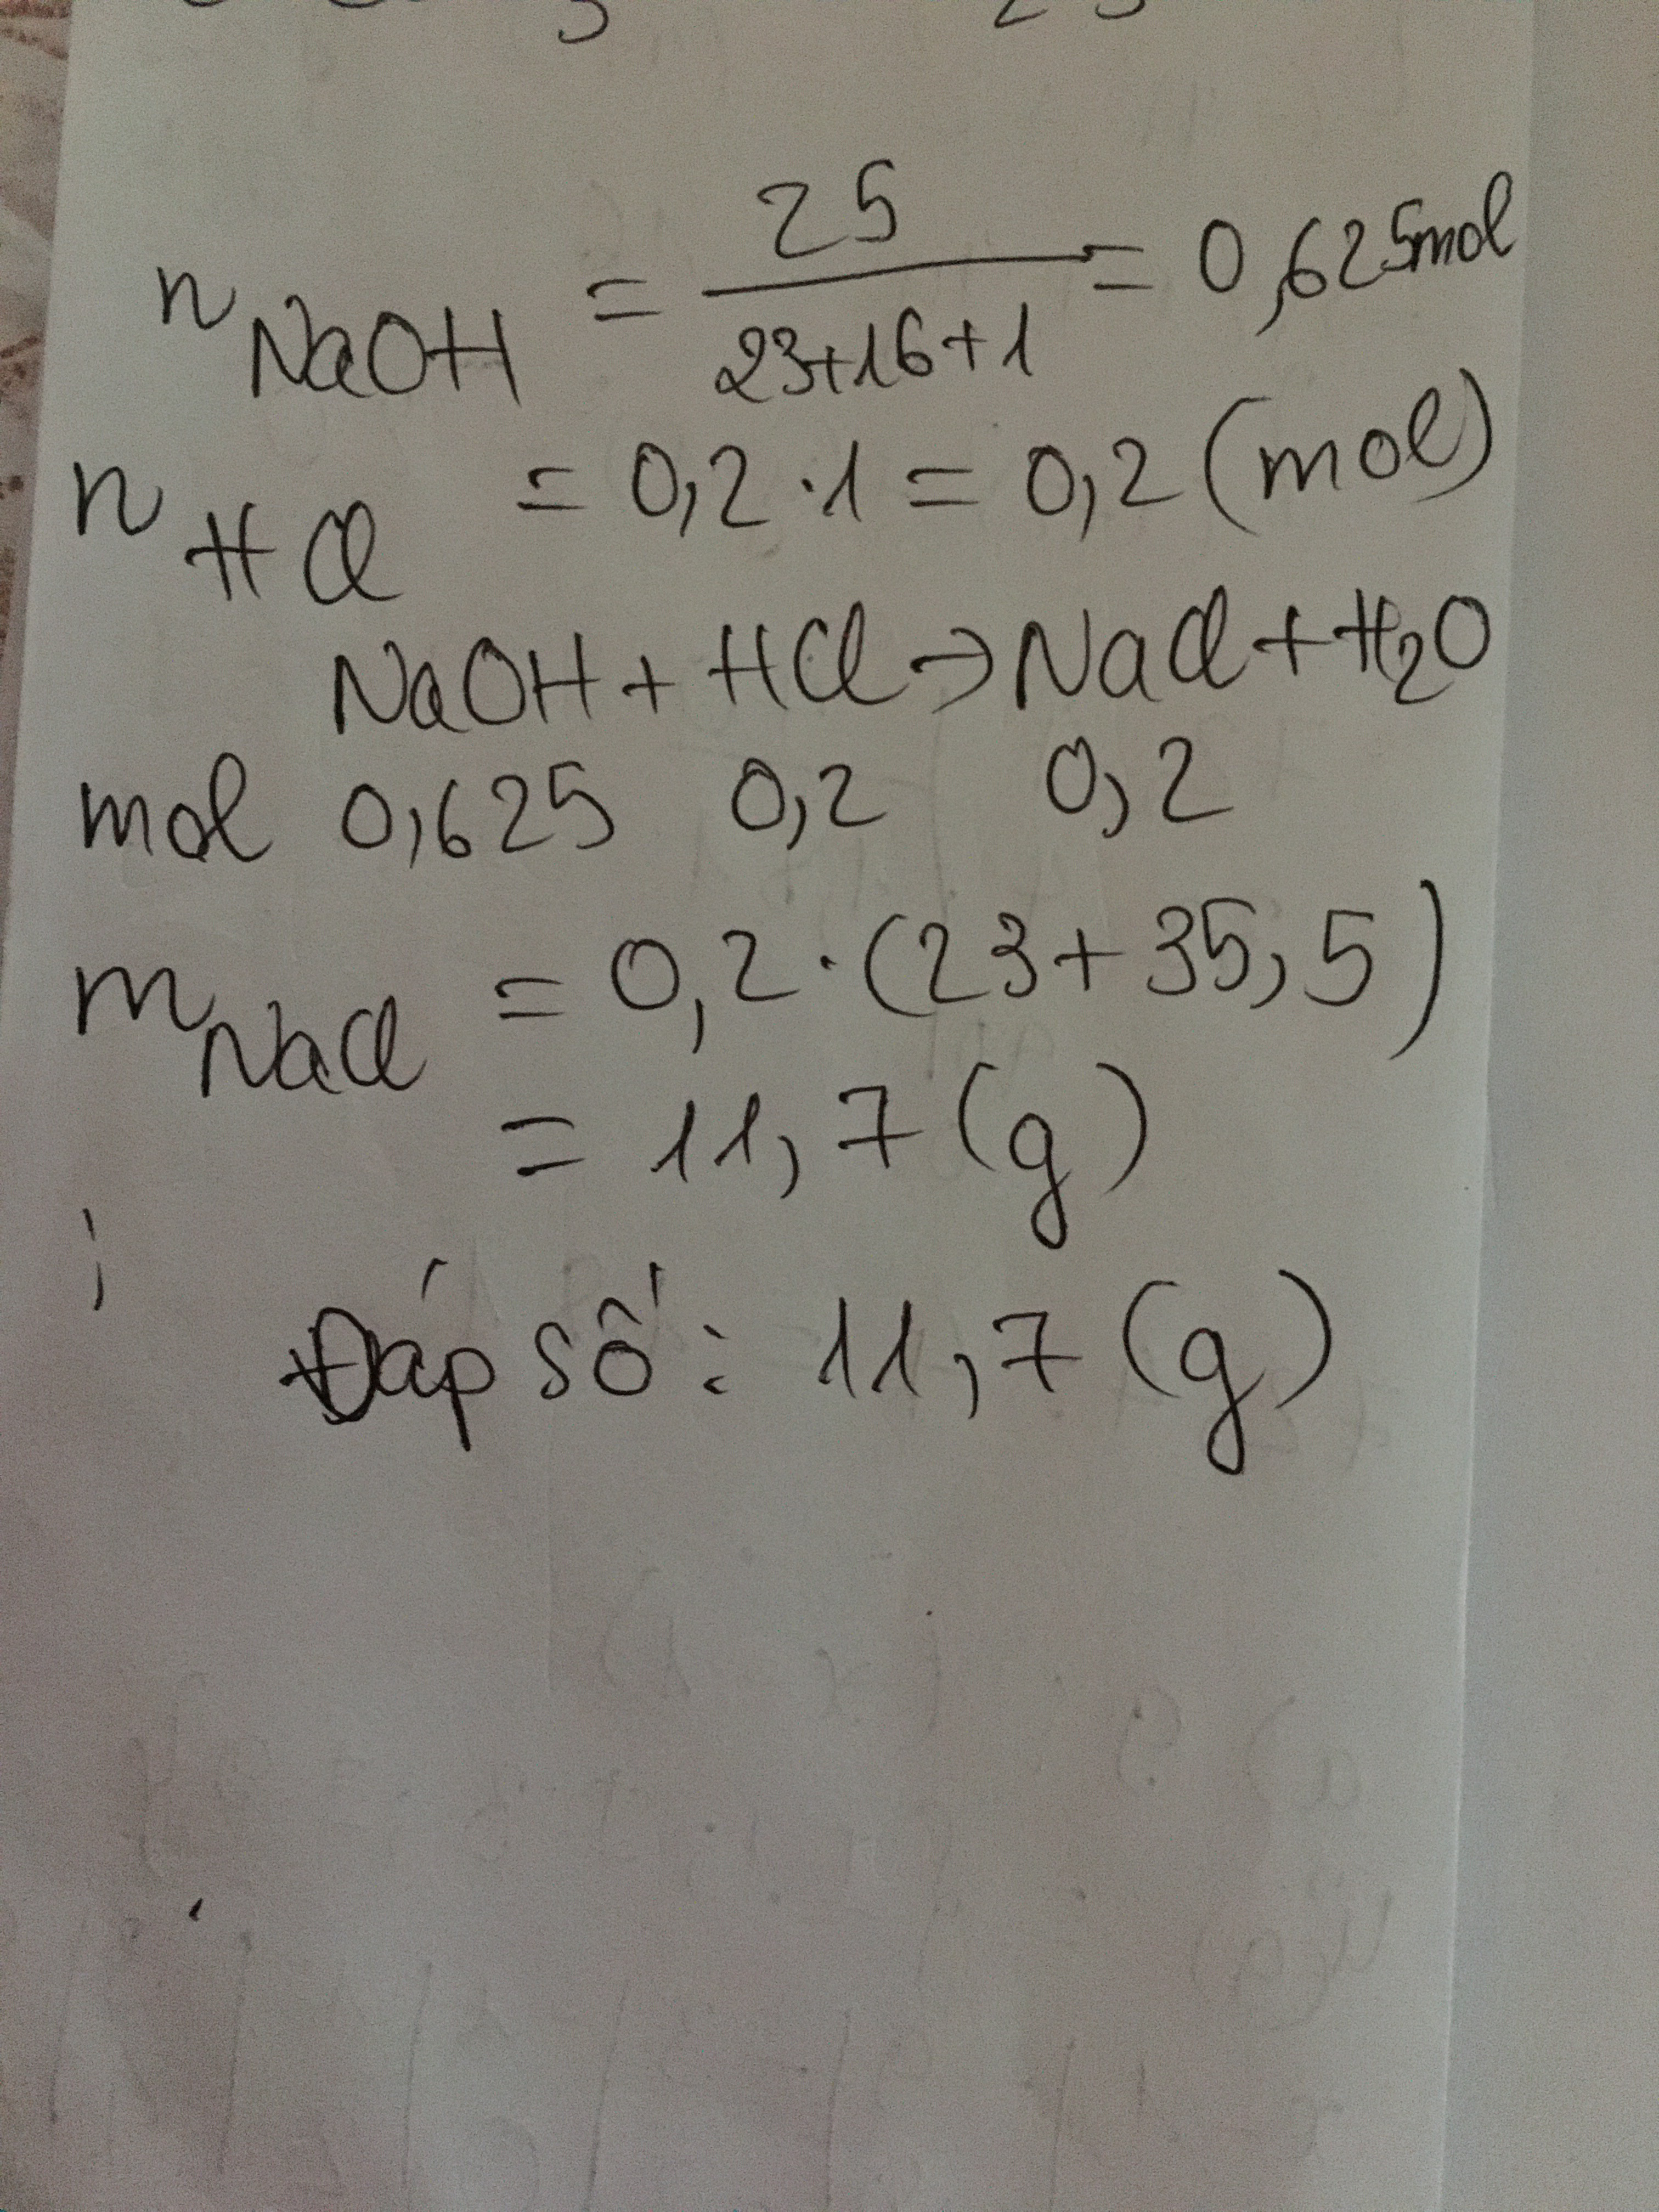 n NaOH = 25 / 23+16+1 = 0,625mol
n HCl = 0,2 · 1 = 0,2 (mol)
NaOH + HCl → NaCl + H₂O
mol 0,625 0,2 0,2
m NaCl = 0,2 · (23 + 35,5)
= 11,7 (g)
Đáp số: 11,7 (g)